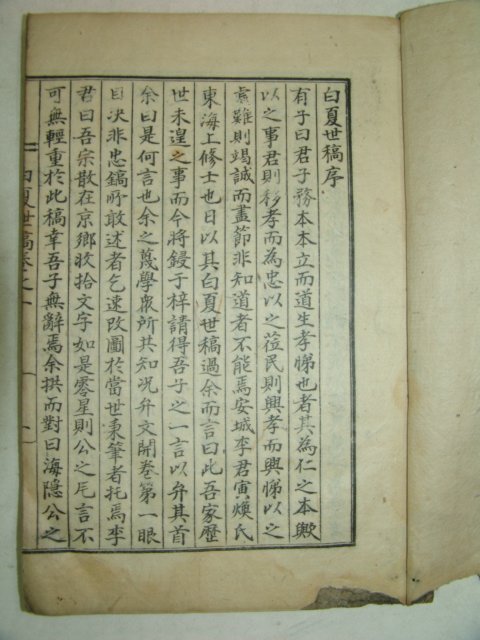 白夏世稿序
有子曰君子務本本立而道生孝悌也者其為仁之本歟
以之事君則移孝而為忠以之莅民則興孝而興悌以之
處難則竭誠而盡節非知道者不能焉安城李君寅煥氏
東海上修士也日以其白夏世稿過余而言曰此吾家歷
世未遑之事而今將鋟于梓請得吾子之一言以弁其首
余曰是何言也余之蔑學衆所共知况弁文開卷第一眼
目决非忠鎬所敢述者乞速改圖於當世秉筆者托焉李
君曰吾宗散在京鄉收拾文字如是零星則公之巵言不
可無輕重於此稿幸吾子無辭焉余拱而對曰海隱公之
白夏世稿卷之一
一